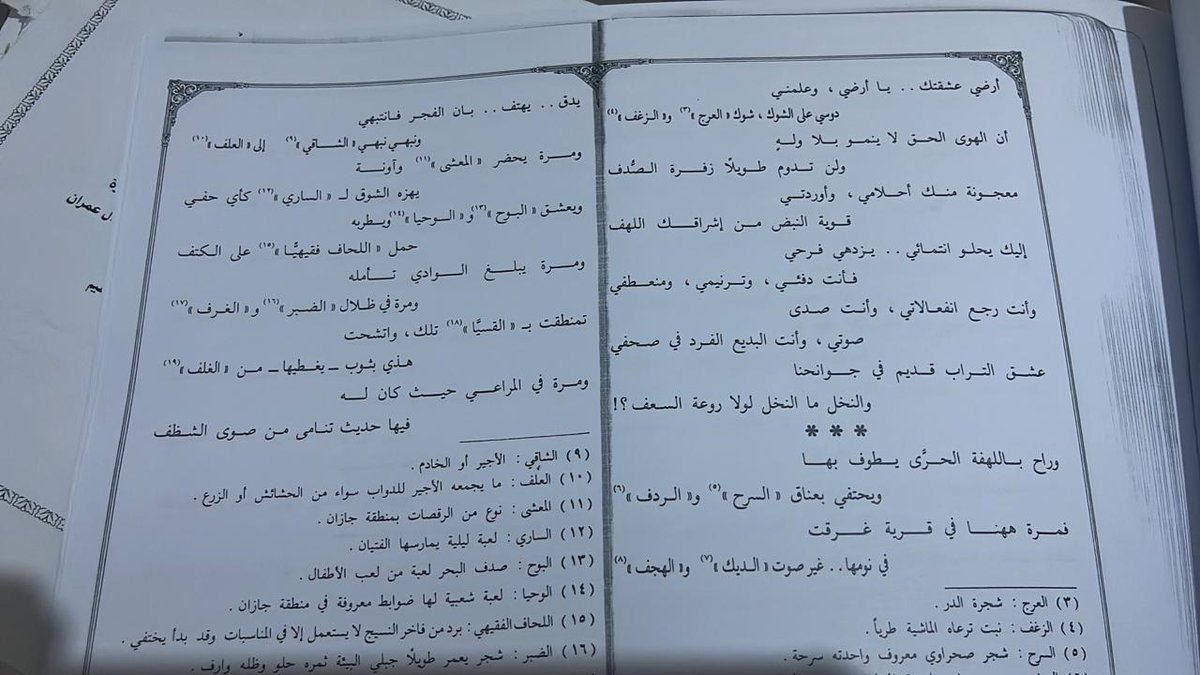 أرضي عشقتك . . يا أرضي ، وعلمني
دوسي على الشوك ، شوك « العرج »(٣) و« الزغف »(٤)
أن الهوى الحق لا ينمو بلا ولهٍ
ولن تدوم طويلًا زفرة الصُّدف
معجونة منك أحلامي ، وأوردتي
قوية النبض من إشراقك اللهف
إليك يحلو انتمائي . . يزدهي فرحي
فأنت دفئي ، وترنيمي ، ومنعطفي
وأنت رجع انفعالاتي ، وأنت صدى
صوتي ، وأنت البديع الفرد في صحفي
عشق التراب قديم في جوانحنا
والنخل ما النخل لولا روعة السعف ؟!
* * *
وراح باللهفة الحرَّى يطوف بها
ويحتفي بعناق « السرح »(٥) و« الردف »(٦)
فمرة ههنا في قرية غرقت
في نومها . . غير صوت « الديك »(٧) و« الهجف »(٨)
(٣) العرج : شجرة الدر .
(٤) الزغف : نبت ترعاه الماشية طرياً .
(٥) السرح : شجر صحراوي معروف واحدته سرحة .
يدق . . يهتف . . بان الفجر فانتبهي
ونبهي نبهي « الشاقي »(٩) إلى « العلف »(١٠)
ومرة يحضر « المعشى »(١١) وآونة
يهزه الشوق لـ « الساري »(١٢) كأي حفي
ويعشق « البوح »(١٣) و« الوحيا »(١٤) ويسطربه
حمل « اللحاف فقيهيًّا »(١٥) على الكتف
ومرة يبلغ الوادي تأمله
ومرة في ظلال « الضبر »(١٦) و« الغرف »(١٧)
تمنطقت بـ « القسيَّا »(١٨) تلك ، واتشحت
هذي بثوب ــ يغطيها ــ من « الغلف »(١٩)
ومرة في المراعي حيث كان له
فيها حديث تنامى من صوى الشظف
(٩) الشاقي : الأجير أو الخادم .
(١٠) العلف : ما يجمعه الأجير للدواب سواء من الحشائش أو الزرع .
(١١) المعشى : نوع من الرقصات بمنطقة جازان .
(١٢) الساري : لعبة ليلية يمارسها الفتيان .
(١٣) البوح : صدف البحر لعبة من لعب الأطفال .
(١٤) الوحيا : لعبة شعبية لها ضوابط معروفة في منطقة جازان .
(١٥) اللحاف الفقيهي : برد من فاخر النسيج لا يستعمل إلا في المناسبات وقد بدأ يختفي .
(١٦) الضبر : شجر يعمر طويلًا جبلي البيئة ثمره حلو وظله وارف .
ل عمران